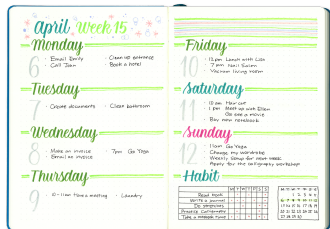 April Week 15
Monday
6
• Email Emily
• Call Jean
• Clean up entrance
• Book a hotel
Tuesday
7
• Copote documents
• Clean bathroom
Wednesday
8
• Make an invoice
• Email an invoice
• 7pm Go Yoga
Thursday
9
• Laundry
Friday
10
12pm Lunch with Liza
7pm Nail Salon
Vacuum living room
Saturday
11
10am Hair cut
1pm Meet up with Ellen
Go see a movie
Buy new notebook
Sunday
12
11am Go Yoga
Change my wardrobe
Weekly Setup for next week
Apply for the calligraphy workshop
Habit
M T W T F S S
Read book
Write a journal
Do stretches
Practice Calligraphy